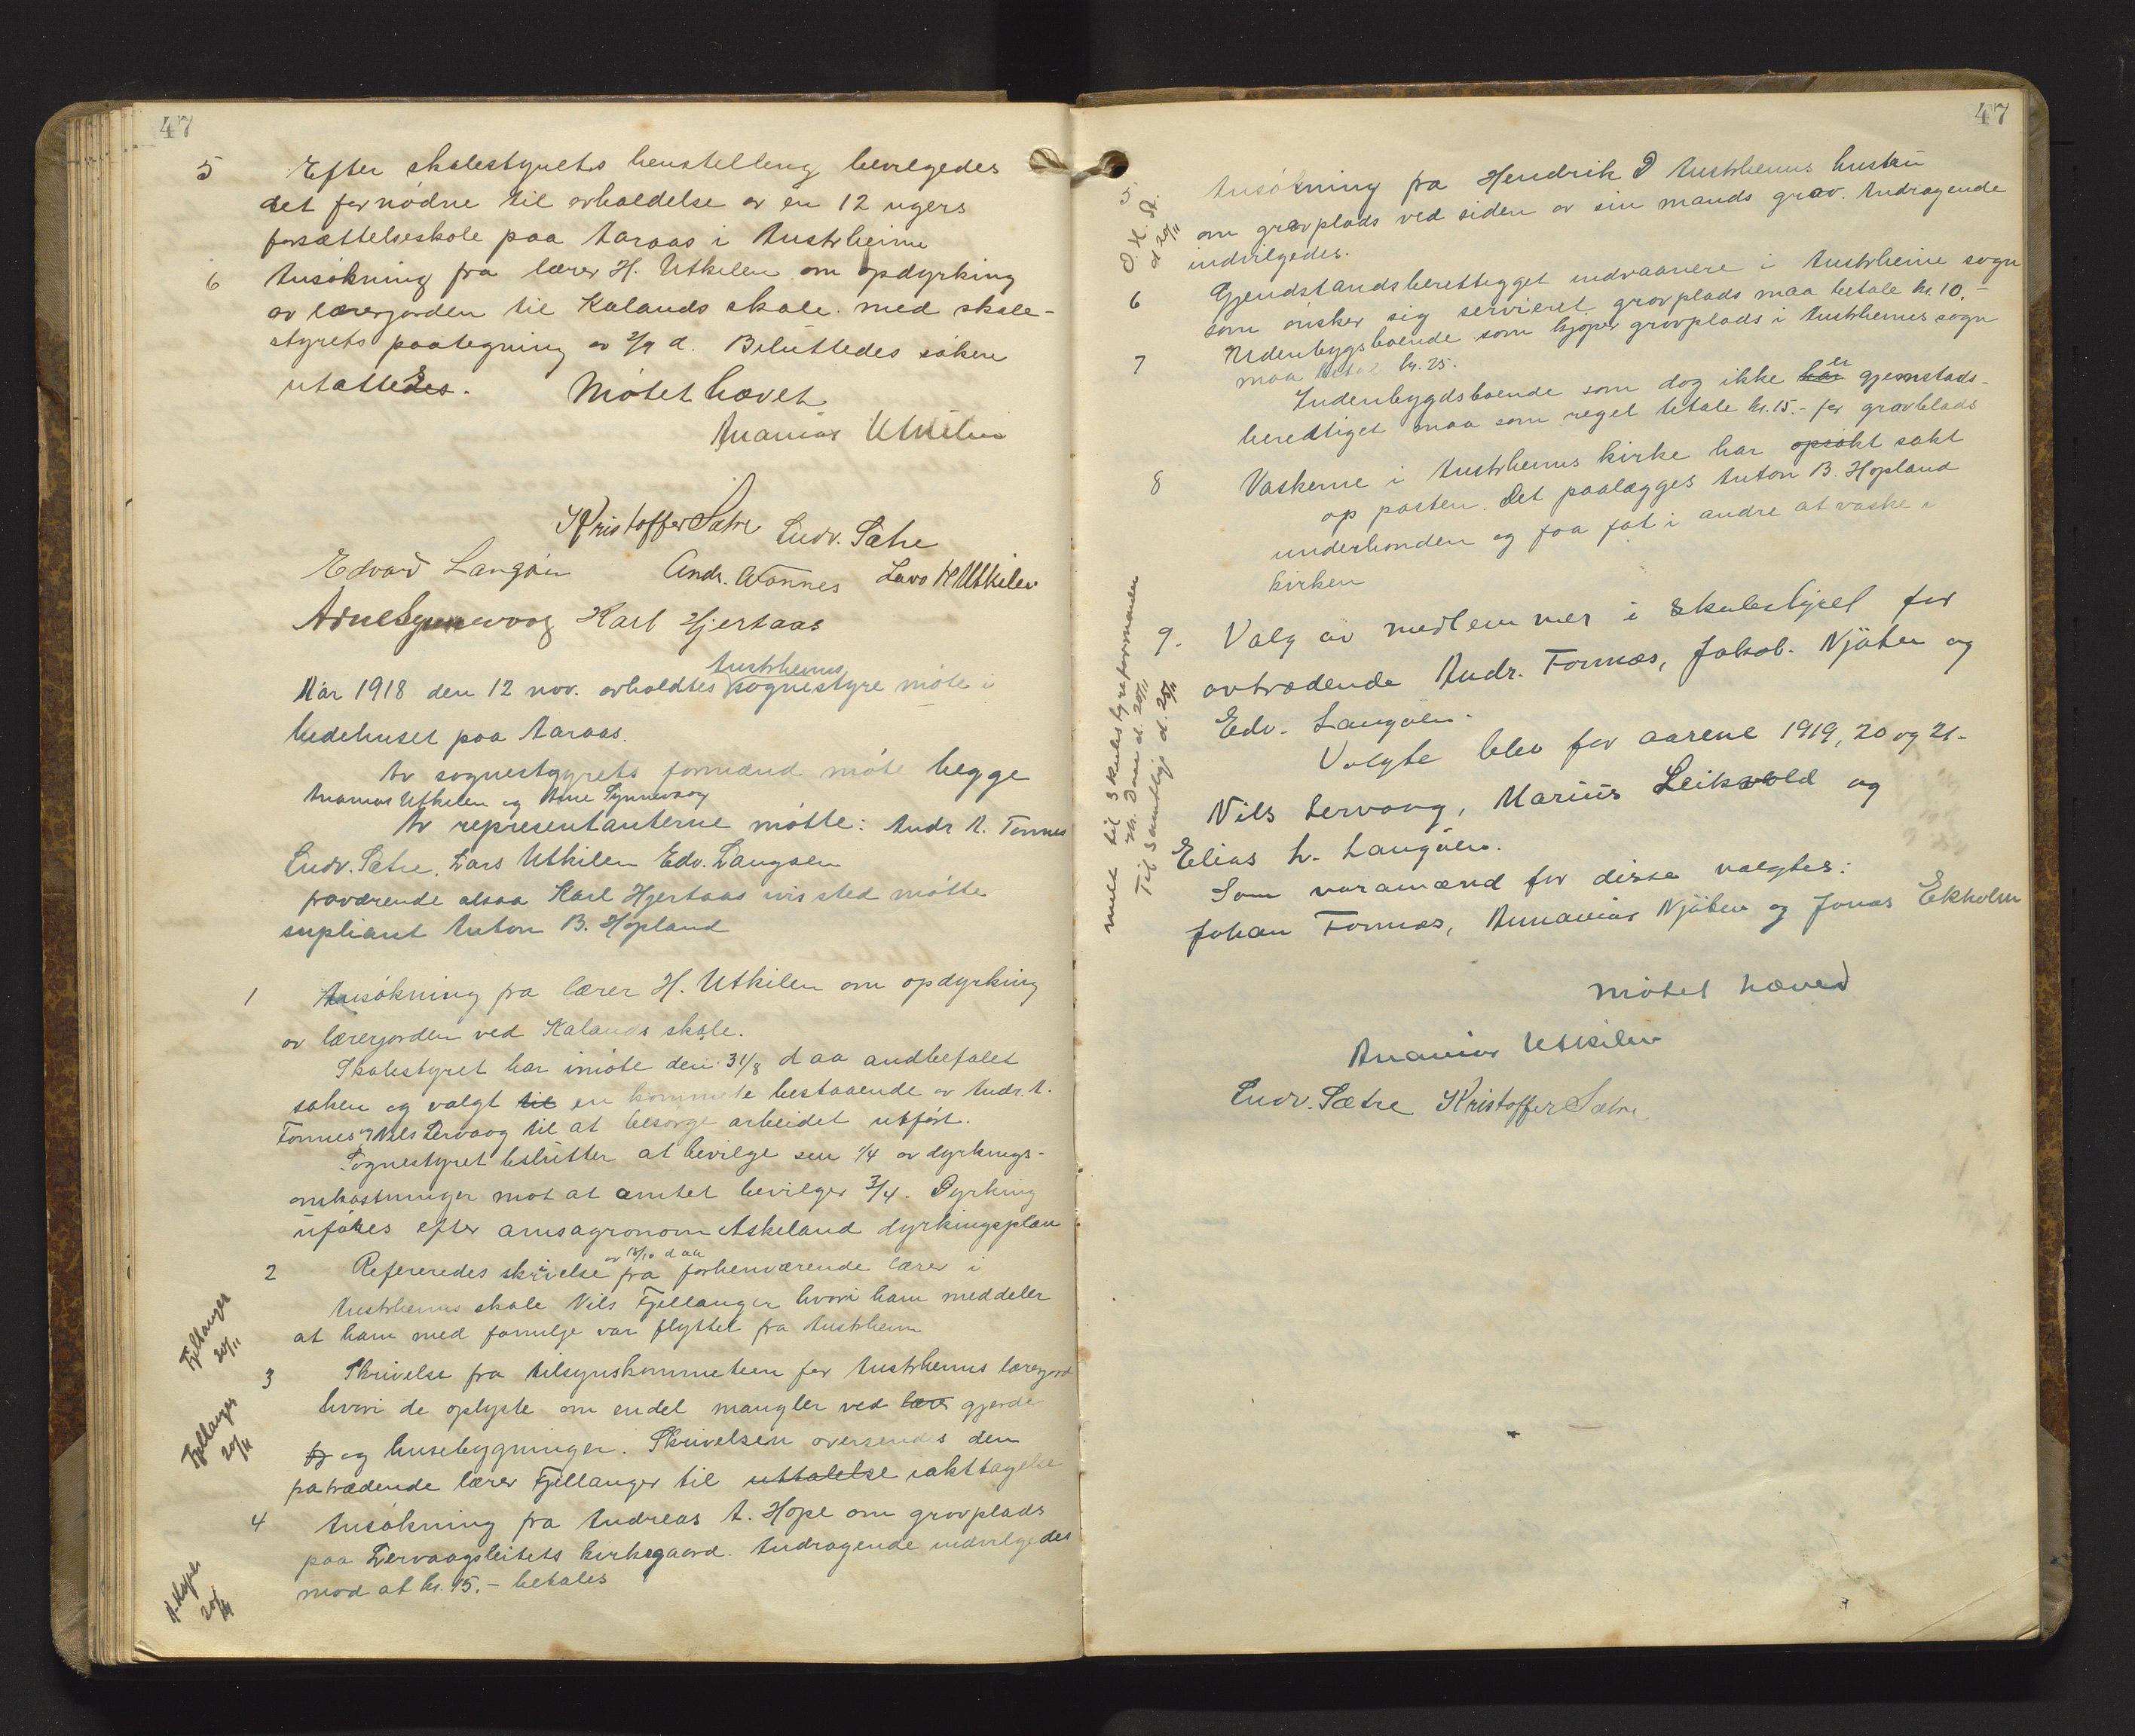 47
5 Efter skolestyrets henstilleng bevilgedes
det fornødne til avholdelse av en 12 ugers
forsættelseskole paa Aaraas i Austrheim
6 Ansøkning fra lærer H. Utkilen om opdyrking
av lærerjorden til Kalands skole. med skole-
styrets paategning av 2/9 d. Besluttedes saken
utsættes.
Møtet hævet
Ananias Utkilen
Kristoffer Sætre Ludv. Sætre
Edvard Langøen Andr. Fonnes Lars H Utkilen
Arne Synnevaag Karl Hjertaas
Aar 1918 den 12 nov. avholdtes Austrheims sognestyre møte i
bedehuset paa Aaraas.
Av sognestyrets formænd møte begge
Ananias Utkilen og Arne Synnevaag
Av representanterne møtte: Andr A. Fonnes
Ludv. Sætre, Lars Utkilen Edv. Langøen
fraværende alsaa Karl Hjertaas ivis sted møtte
supliant Anton B. Hopland
1 Ansøkning fra lærer H. Utkilen om opdyrking
av lærerjorden ved Kalands skole.
Skolestyret har i møte den 31/8 d aa andbefalet
saken og valgt til en kommite bestaaende av Andr. A.
Fonnes og Nils Dervaag til at besorge arbeidet utført.
Sognestyret beslutter at bevilge sin 1/4 av dyrknings-
omkostninger mot at amtet bevilger 3/4. Dyrking
uføres efter amsagronom Askeland dyrkingsplan
2 Refereredes skrivelse av 18/10 d aa fra forhenværende lærer i
Austrheims skole Nils Fjellanger hvori ham meddeler
at ham med familje var flyttet fra Austrheim
Fjellanger
20/11
3 Skrivelse fra tilsynskommiteen for Austrheims lærerjord
hvori de oplyste om endel mangler ved lærer gjerde
og husebygninger. Skrivelsen oversendes den
fratrædende lærer Fjellanger til uttalelse iakttagelse
Fjellanger
20/11
4 Ansøkning fra Andreas A. Hope om gravplads
paa Dervaagsleitets kirkegaard. Andragende indvilgedes
mod at kr. 15.- betales
A. Hope
20/11
47
5 Ansøkning fra Hendrik O Austrheims hustru
om gravplads ved siden av sin mands grav. Andragende
indvilgedes.
O. H. A.
d 20/11
6 Gjendstandsberettigget indvaanere i Austrheim sogn
som ønsker sig servieret gravplads maa betale kr. 10.-
7 Udenbygsboende som kjøper gravplads i Austrheims sogn
maa betale kr. 25.
Indenbygdsboende som dog ikke har er gjenstads-
beredtiget maa som regel betale kr. 15.- for gravplads
8 Vaskerne i Austrheims kirke har opsøkt sakt
op posten. Det paalægges Anton B. Hopland
underhonden og faa fat i andre at vaske i
kirken
9. Valg av medlemmer i skolestyret for
avtrædende Andr. Fonnes, Jakob. Njøten og
Edv. Langøen.
Valgte blev for aarene 1919, 20 og 21.
Nils Dervaag, Marius Leikvold og
Elias L. Langøen.
Som varamænd for disse valgtes:
Johan Fonnes, Annanias Njøten og Jonas Ekholm
meldt til Skulestyreformanden
d. 20/11
Til Samtlige d. 25/11
Møtet hæved
Ananias Utkilen
Ludv. Sætre Kristoffer Sætre